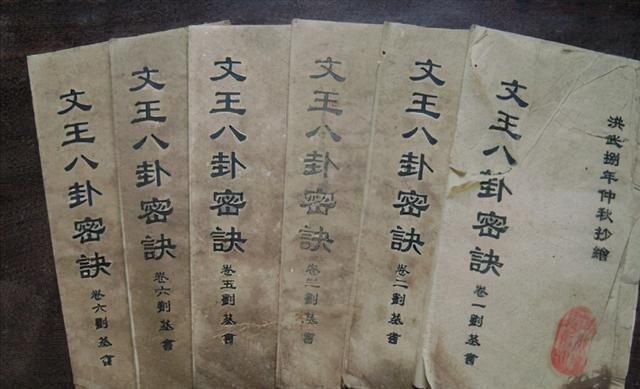 洪武捌年仲秋抄繪
文王八卦密訣
卷一劉基書
文王八卦密訣
卷二劉基書
文王八卦密訣
卷 劉基書
文王八卦密訣
卷五劉基書
文王八卦密訣
卷六劉基書
文王八卦密訣
卷六劉基書